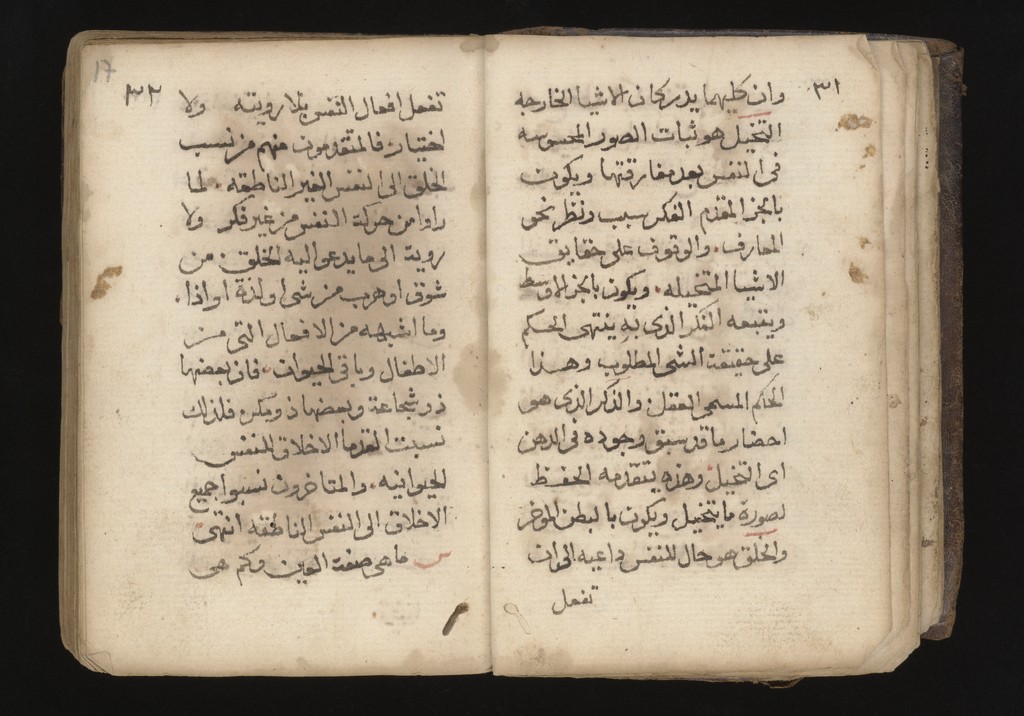 ٣١
وان كليهما يدركان الاشيا الخارجه
التخيل هو ثبات الصور المحسوسه
فى النفس بعد مفارقتها ويكون
بالجز المقدم الفكر سبب ونظر نحو
المعارف والوقوف على حقايق
الاشيا المتخيله ويكون بالجز الاوسط
ويتبعه الفكر الذى به ينتهى الحكم
على حقيقة الشى المطلوب وهذا
الحكم المسمى العقل والذكر الذى هو
احضار ما قد سبق وجوده فى الدهن
اى التخيل وهذه يتقدمه الحفظ
لصورة ما يتخيل ويكون بالبطن الموخر
والخلق هو حال للنفس داعيه الى ان
تفعل
17
٣٢
تفعل افعال النفس بلا رويته ولا
اختيار فالمتقدمون منهم من نسب
الخلق الى النفس الغير الناطقه لما
راوا من حركة النفس من غير فكر ولا
روية الى ما يدعوا اليه الخلق من
شوق او هرب من شى او لذة او اذا
وما اشبهه من الافعال التى من
الاطفال وباقى الحيوان فان بعضها
ذو شجاعة وبعضها ذو مكر فلذلك
نسبت القدما الاخلاق للنفس
الحيوانيه والمتاخرون نسبوا جميع
الاخلاق الى النفس الناطقه انتهى
س ما هى صفة العين وكم هى